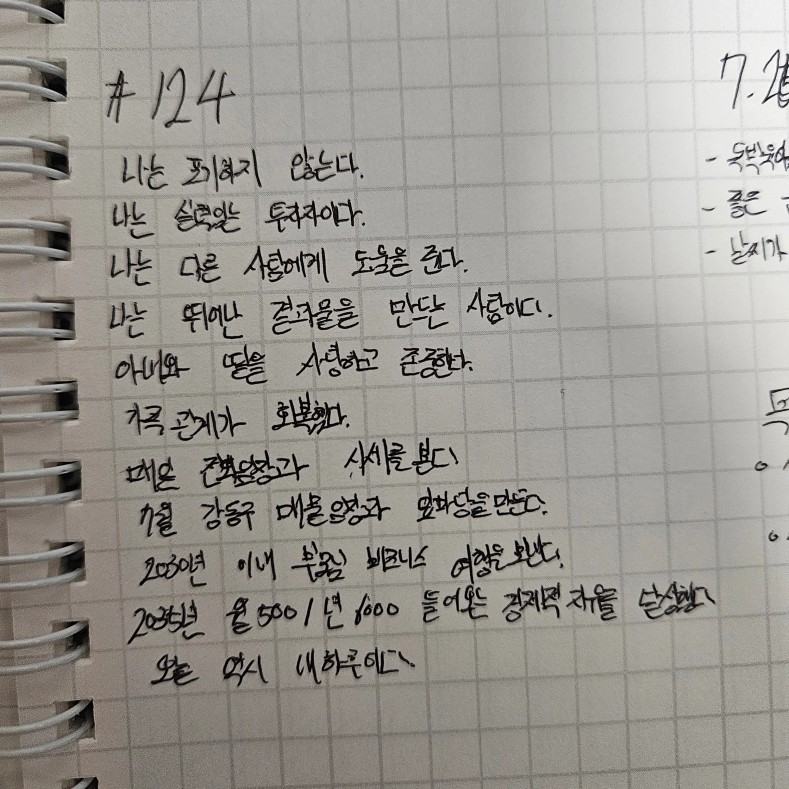 #124
나는 포기하지 않는다.
나는 실력있는 투자자이다.
나는 다른 사람에게 도움을 준다.
나는 뛰어난 결과물을 만드는 사람이다.
아내와 딸을 사랑하고 존중한다.
가족관계가 회복했다.
매일 시세를 본다
7월 강동구 매물임장과 만든다.
2030년 이내 부모님 비즈니스 여행을 보낸다.
2035년 월500/년6000 들어오는 경제적 자유를 달성했다
오늘 역시 내 하루이다.
7.2
- 
- 좋은
- 날씨가